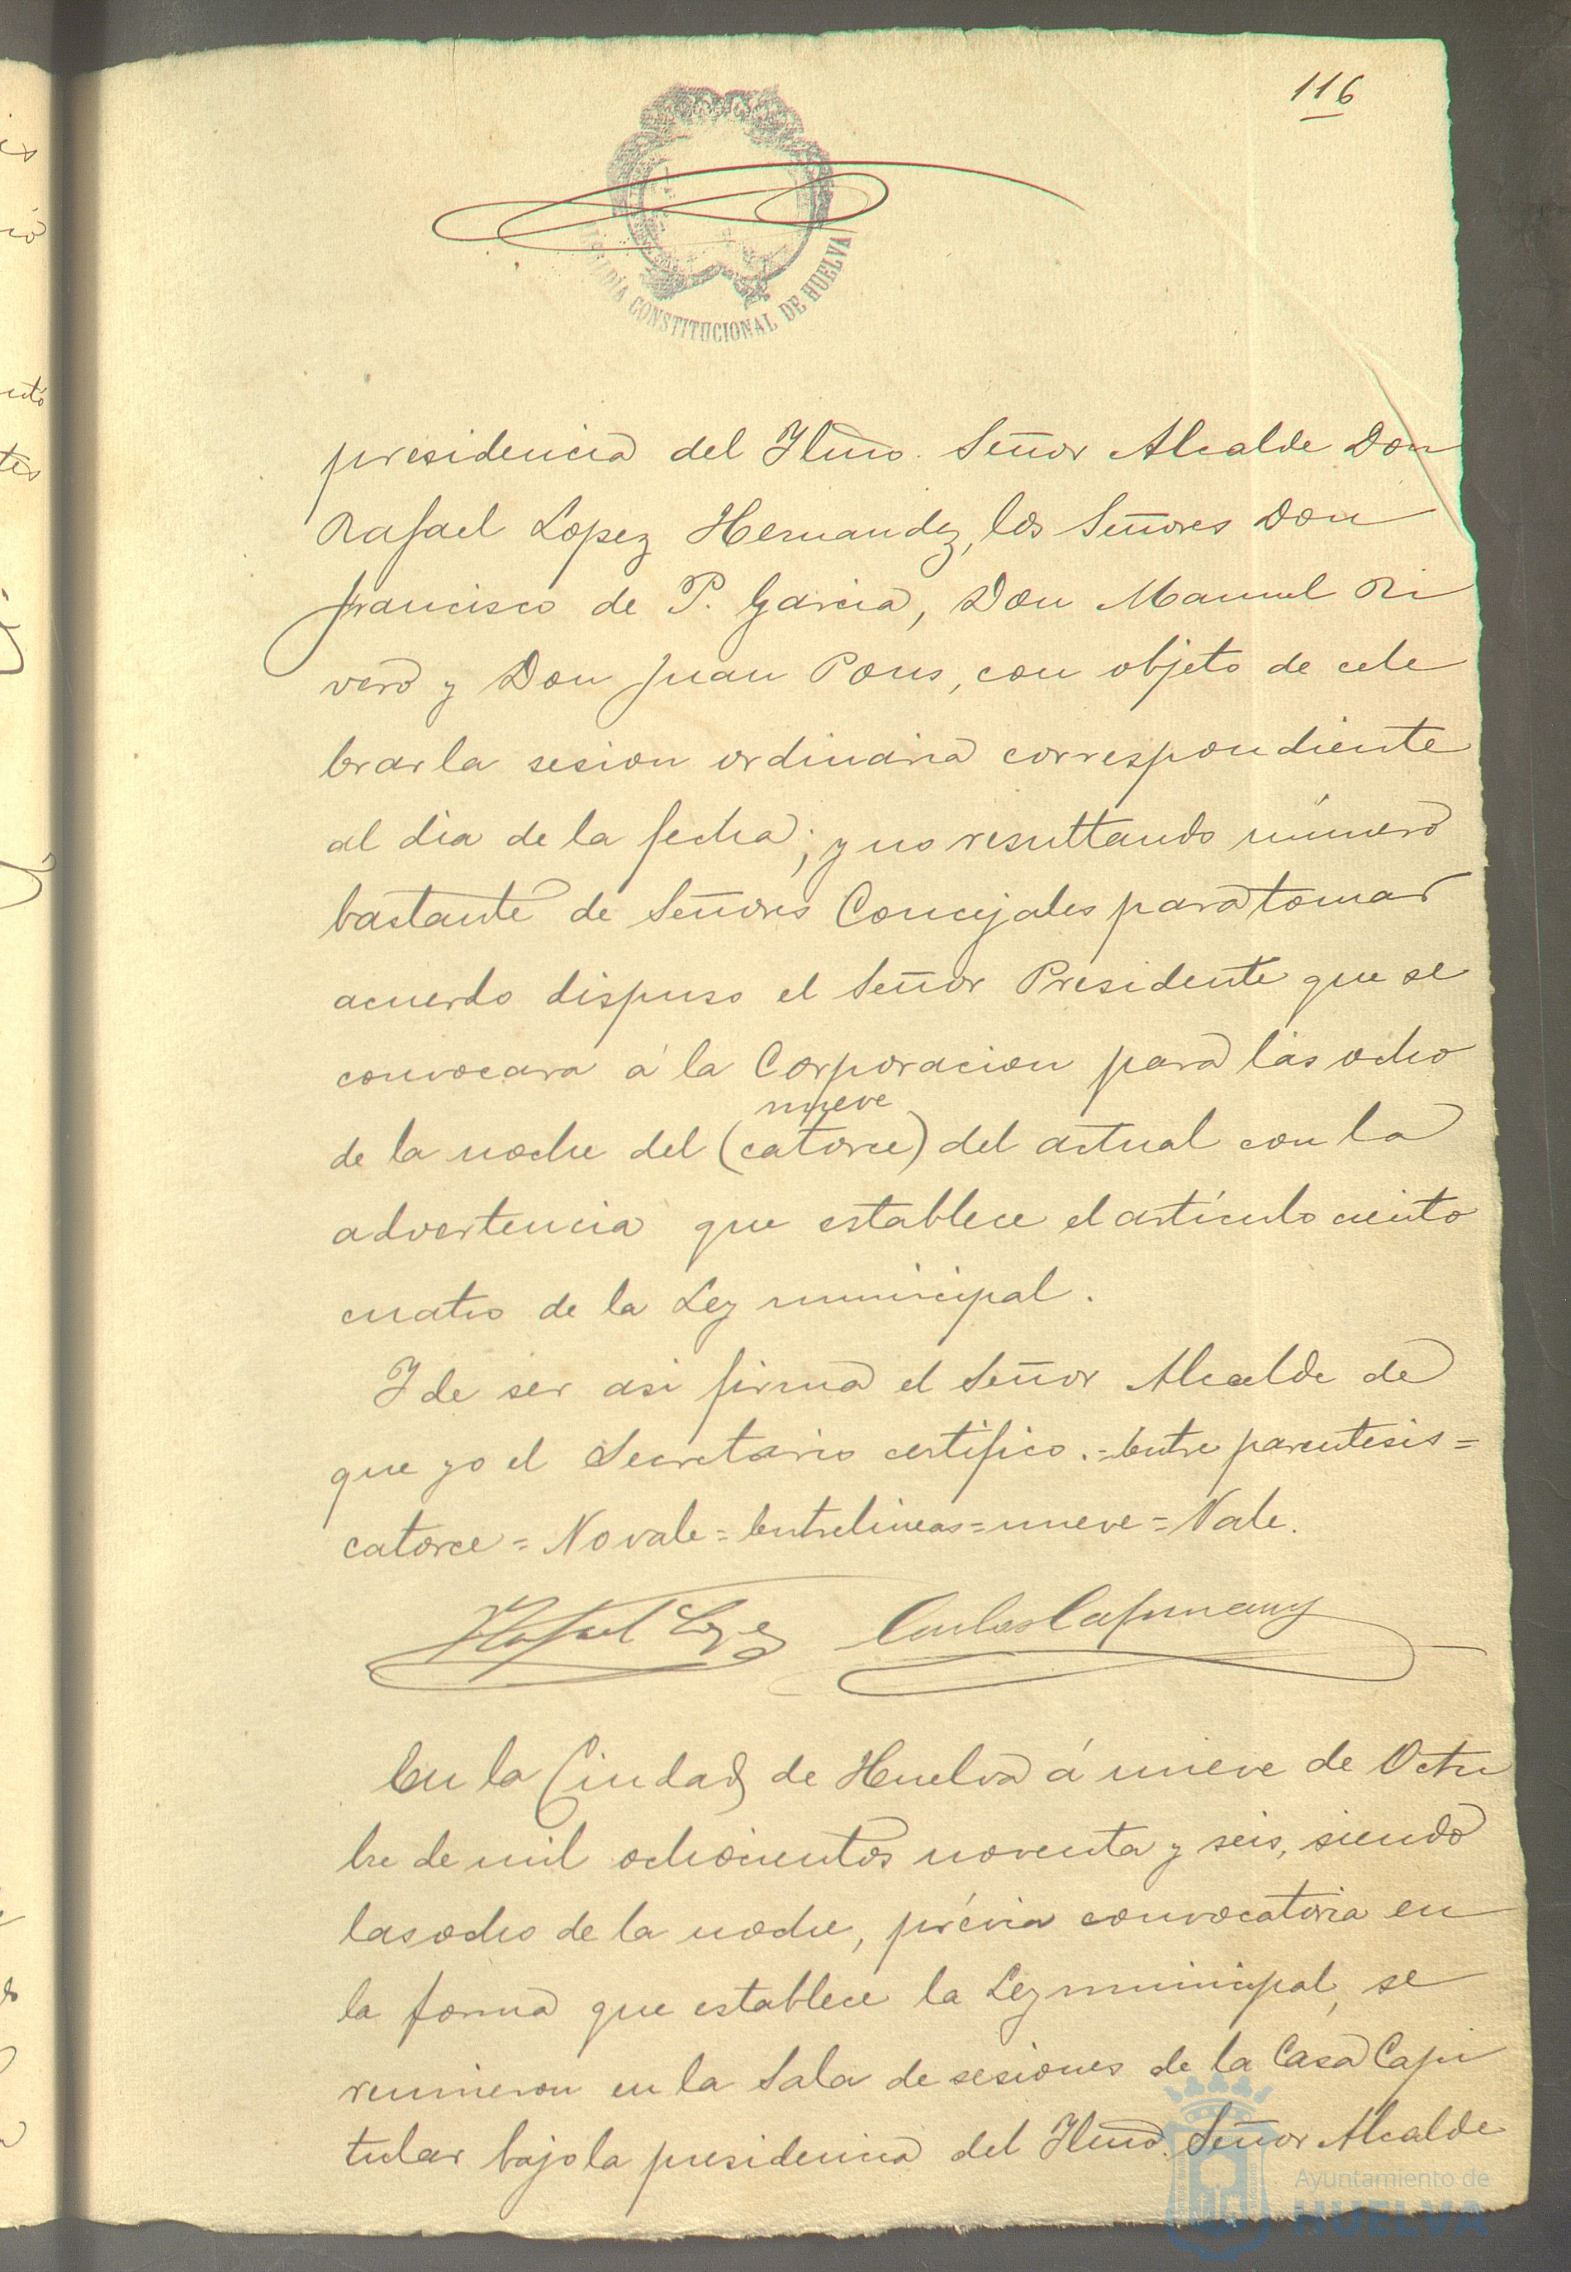 116
ALCALDÍA CONSTITUCIONAL DE HUELVA
presidencia del Ylmo. Señor Alcalde Don
Rafael Lopez Hernandez, los Señores Don
Francisco de P. Garcia, Don Manuel Ri
vero y Don Juan Pons, con objeto de cele
brar la sesion ordinaria correspondiente
al dia de la fecha; y no resultando número
bastante de Señores Concejales para tomar
acuerdo dispuso el Señor Presidente que se
convocara á la Corporacion para las ocho
nueve
de la noche del (catorce) del actual con la
advertencia que establece el artículo ciento
cuatro de la Ley municipal.
Y de ser asi firma el Señor Alcalde de
que yo el Secretario certifico.=Entre parentesis=
catorce=No vale=Entrelineas=nueve=Vale.
Rafael Lopez Carlos Capmany
En la Ciudad de Huelva á nueve de Octu
bre de mil ochocientos noventa y seis, siendo
las ocho de la noche, prévia convocatoria en
la forma que establece la Ley municipal, se
reunieron en la Sala de sesiones de la Casa Capi
tular bajo la presidencia del Ylmo. Señor Alcalde
Ayuntamiento de
HUELVA